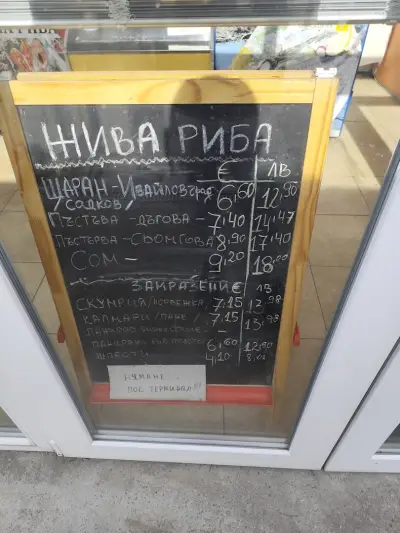 ЖИВА РИБА
€ ЛВ
ШАРАН-Ивайловград 6,60 12,90
/САДКОВ/
ПЪСТЪВА -ДЪГОВА- 7,40 14,47
ПЪСТЪРВА-СЬОМГОВА 8,90 17,40
СОМ - 9,20 18,00
ЗАМРАЗЕНИ € ЛВ
СКУМРИЯ/НОРВЕЖКА 7,15 13,98
КАЛМАРИ/ПАКЕ/ 7,15 13,98
-
6,60 12,90
ШПРОТИ 4,10 8,02
НЯМАМЕ
ПОС ТЕРМИНАЛ!!!